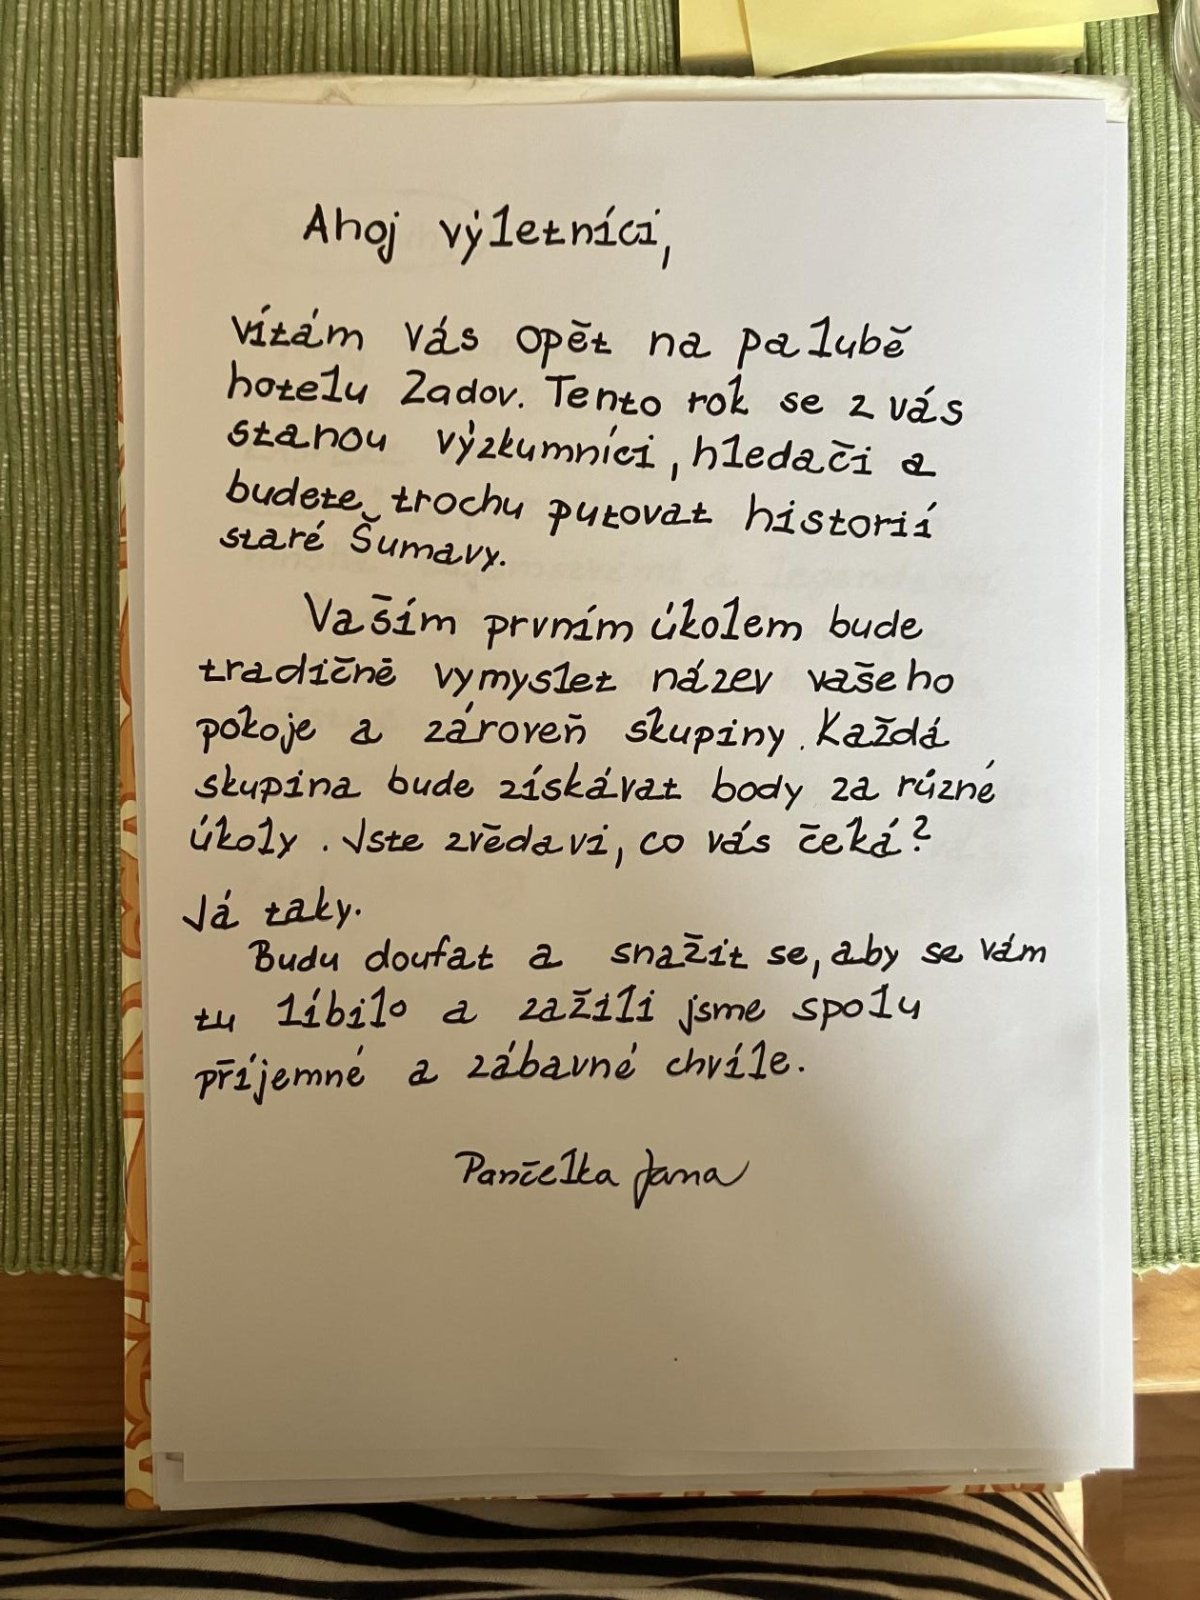 Ahoj výletníci,
vítám vás opět na palubě
hotelu Zadov. Tento rok se z vás
stanou výzkumníci, hledači a
budete trochu putovat historií
staré Šumavy.
Vaším prvním úkolem bude
tradičně vymyslet název vašeho
pokoje a zároveň skupiny. Každá
skupina bude získávat body za různé
úkoly. Jste zvědavi, co vás čeká?
Já taky.
Budu doufat a snažit se, aby se vám
tu líbilo a zažili jsme spolu
příjemné a zábavné chvíle.
Pančelka Jana